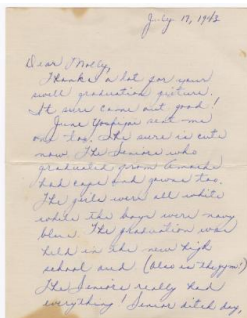 July 17, 1942
Dear Molly,
Thanks a lot for your
swell graduation picture.
It sure came out good!
June sent me
one too. She sure is cute
now. The Seniors who
graduated from
had caps and gowns too.
The girls wore all white
while the boys wore navy
blue. The graduation was
held in the new high
school and (Also in the gym!)
The Seniors really had
everything! Senior ditch day,